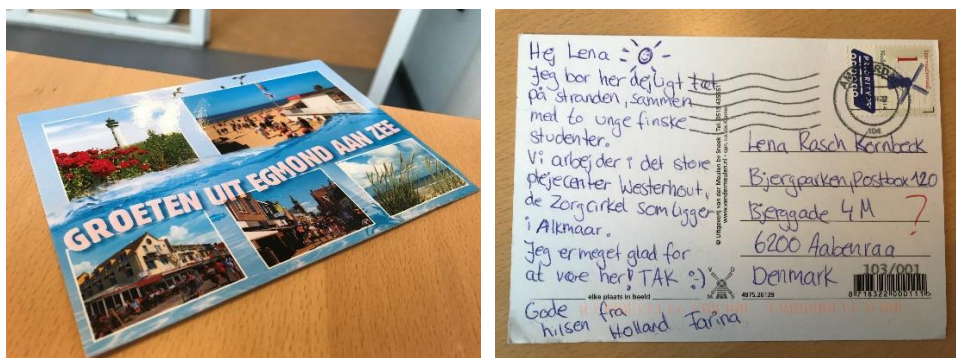 GROETEN UIT EGMOND AAN ZEE
Hej Lena
Jeg bor her dejligt tæt
på stranden, sammen
med to unge finske
studenter.
Vi arbejder i det store
plejecenter Westerhout,
de Zorgcirkel som ligger
i Alkmaar.
Jeg er meget glad for
at være her! TAK :)
Gode
hilsen fra
Holland Farina
elke plaats in beeld
© Uitgeverij van der Meulen bv Sneek
www.vandermeulen.nl
4975.26129
PRIORITY
1
Nederland
AMSTERDAM
Lena Rasch Kornbeck
Bjergparken, Postbox 120
Bjerggade 4M ?
6200 Aabenraa
Denmark
103/001
8 718322 000111